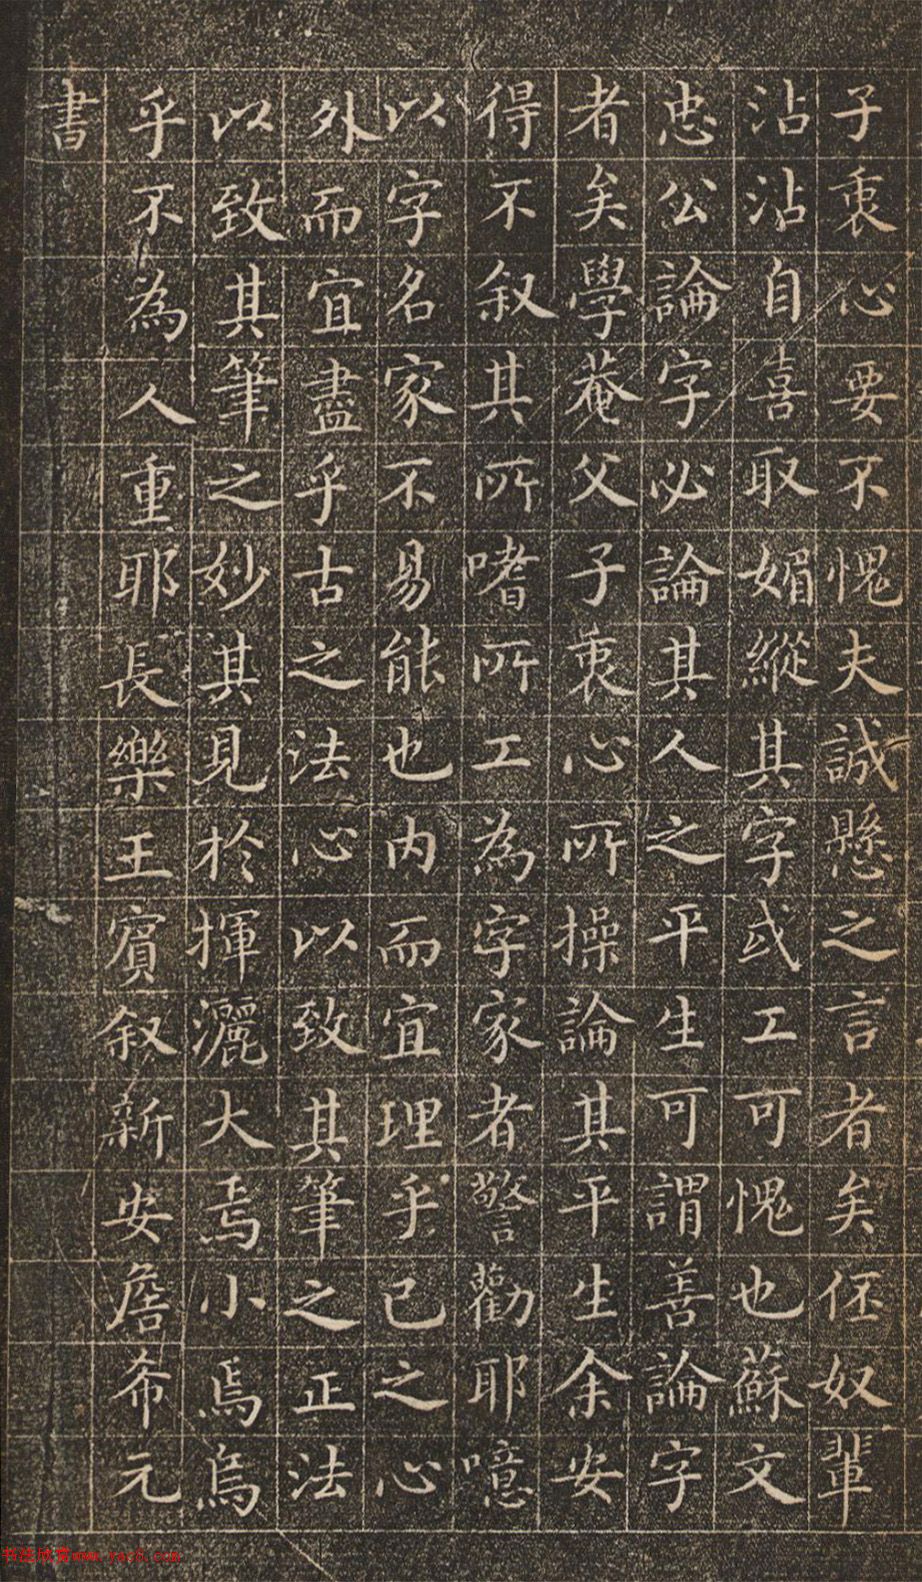 子衷心要不愧夫誠懸之言者矣伾奴輩
沾沾自喜取媚縱其字或工可愧也蘇文
忠公論字必論其人之平生可謂善論字
者矣學菴父子衷心所操論其平生余安
得不叙其所嗜所工為字家者警勸耶噫
以字名家不易能也内而宜理乎已之心
外而宜盡乎古之法心以致其筆之正法
以致其筆之妙其見於揮灑大焉小焉烏
乎不為人重耶長樂王賔叙新安詹希元
書
www.yac8.com